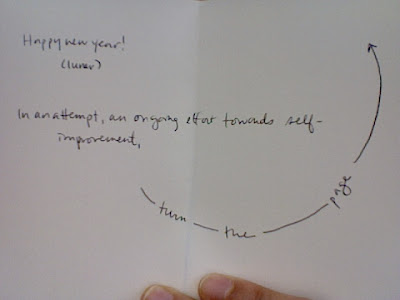 Happy new year!
(lunar)
In an attempt, an ongoing effort towards self-
improvement,
turn the page